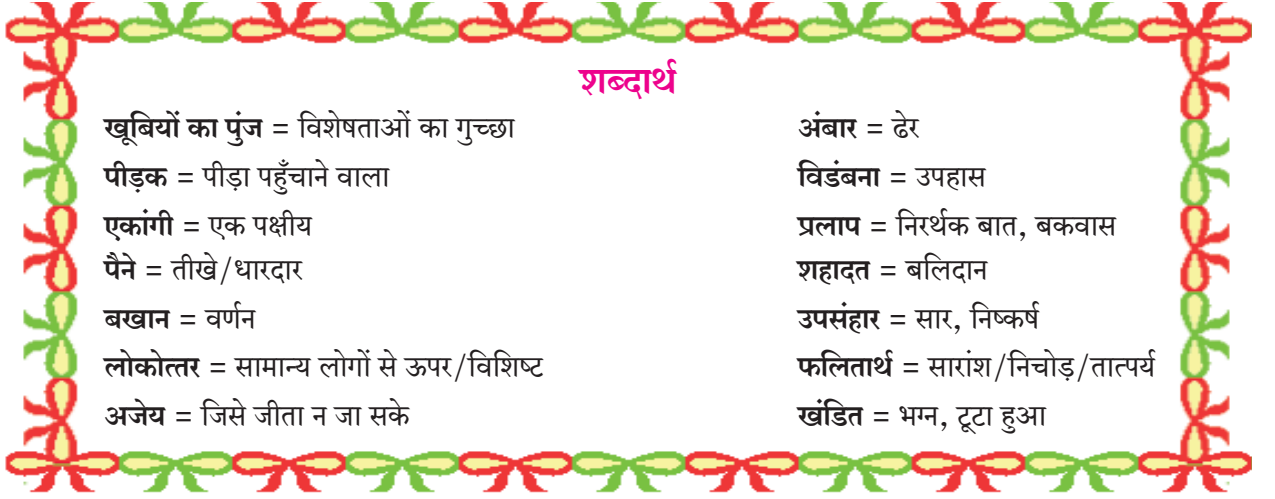 शब्दार्थ
खूबियों का पुंज = विशेषताओं का गुच्छा
पीड़क = पीड़ा पहुँचाने वाला
एकांगी = एक पक्षीय
पैने = तीखे/धारदार
बखान = वर्णन
लोकोत्तर = सामान्य लोगों से ऊपर/विशिष्ट
अजेय = जिसे जीता न जा सके
अंबार = ढेर
विडंबना = उपहास
प्रलाप = निरर्थक बात, बकवास
शहादत = बलिदान
उपसंहार = सार, निष्कर्ष
फलितार्थ = सारांश/निचोड़/तात्पर्य
खंडित = भग्न, टूटा हुआ